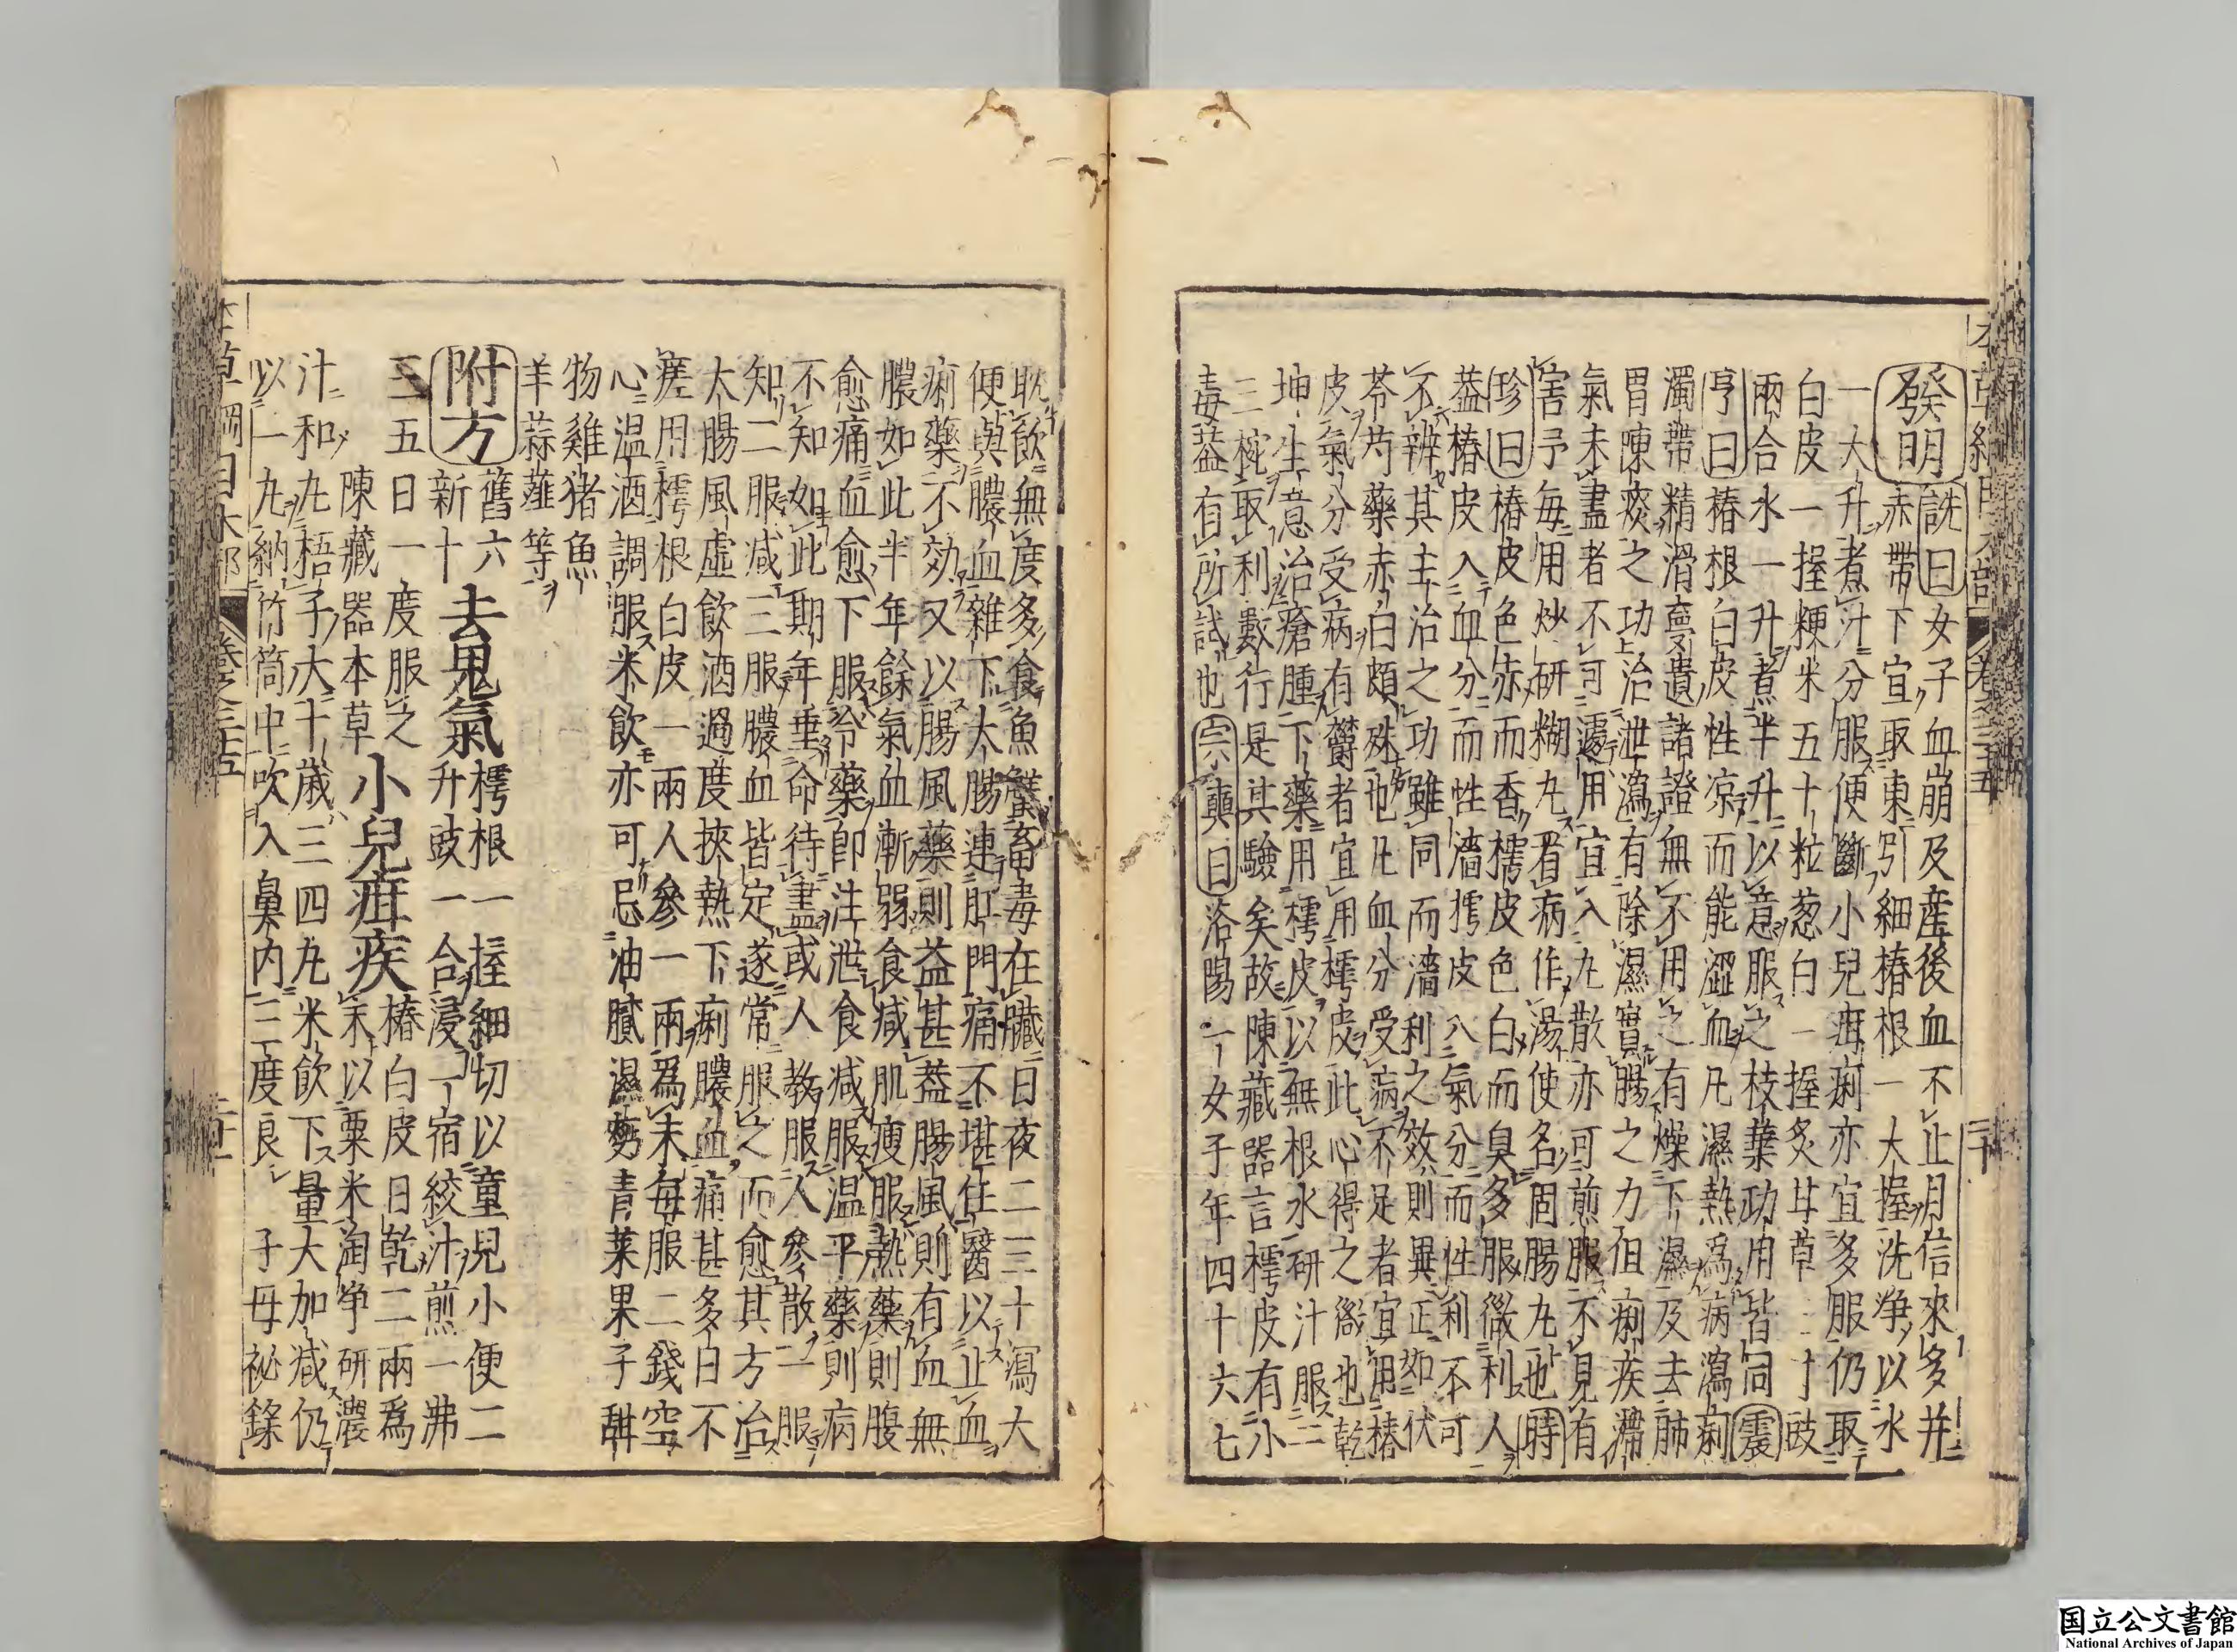 發明 詵曰女子血崩及産後血不止月信來多并
赤帶下宜取東引細椿根一大握洗浄以水
一大升煮汁分服便斷小兒疳痢亦宜多服仍取
白皮一握粳米五十粒葱白一握炙甘草三寸豉
兩合水一升煮半升以意服之枝葉功用皆同 震
亨曰椿根白皮性凉而能澀血凡濕熱爲病瀉痢
濁帶精滑夢遺諸證無不用之有燥下濕及去肺
胃陳痰之功治泄瀉有除濕實腸之力但痢疾滯
氣未盡者不可遽用宜入丸散亦可煎服不見有
害予毎用炒研糊丸看病作湯使名固腸丸也 時
珍曰椿皮色赤而香樗皮色白而臭多服微利人
葢椿皮入血分而性濇樗皮入氣分而性利不可
不辨其主治之功雖同而濇利之效則異正如茯
苓芍藥赤白頗殊也凡血分受病不足者宜用椿
皮氣分受病有鬱者宜用樗皮此心得之微也乾
坤生意治瘡腫下藥用樗皮以無根水研汁服二
三椀取利數行是其驗矣故陳藏器言樗皮有小
毒葢有所試也 宗奭曰洛陽一女子年四十六七
耽飲無度多食魚蟹畜毒在臟日夜二三十瀉大
便與膿血雜下大腸連肛門痛不堪任醫以止血
痢藥不効又以腸風藥則益甚葢腸風則有血無
膿如此半年餘氣血漸弱食减肌瘦服熱藥則腹
愈痛血愈下服冷藥即注泄食减服温平藥則病
不知如此期年垂命待盡或人教服人參散一服
知二服减三服膿血皆定遂常服之而愈其方治
大腸風虛飲酒過度挾熱下痢膿血痛甚多日不
瘥用樗根白皮一兩人參一兩爲末毎服二錢空
心温酒調服米飲亦可忌油膩濕麪青菜果子甜
物雞猪魚
羊蒜薤等
附方 舊六
新十 去鬼氣 樗根一握細切以童兒小便二
升豉一合浸一宿絞汁煎一沸
三五日一度服之
陳藏器本草 小兒疳疾 椿白皮日乾二兩爲
末以粟米淘浄研濃
汁和丸梧子大十歳三四丸米飲下量大加减仍
以一丸納竹筒中吹入鼻内三度良 子母祕録
本草綱目木部 卷之三十五
国立公文書館
National Archives of Japan